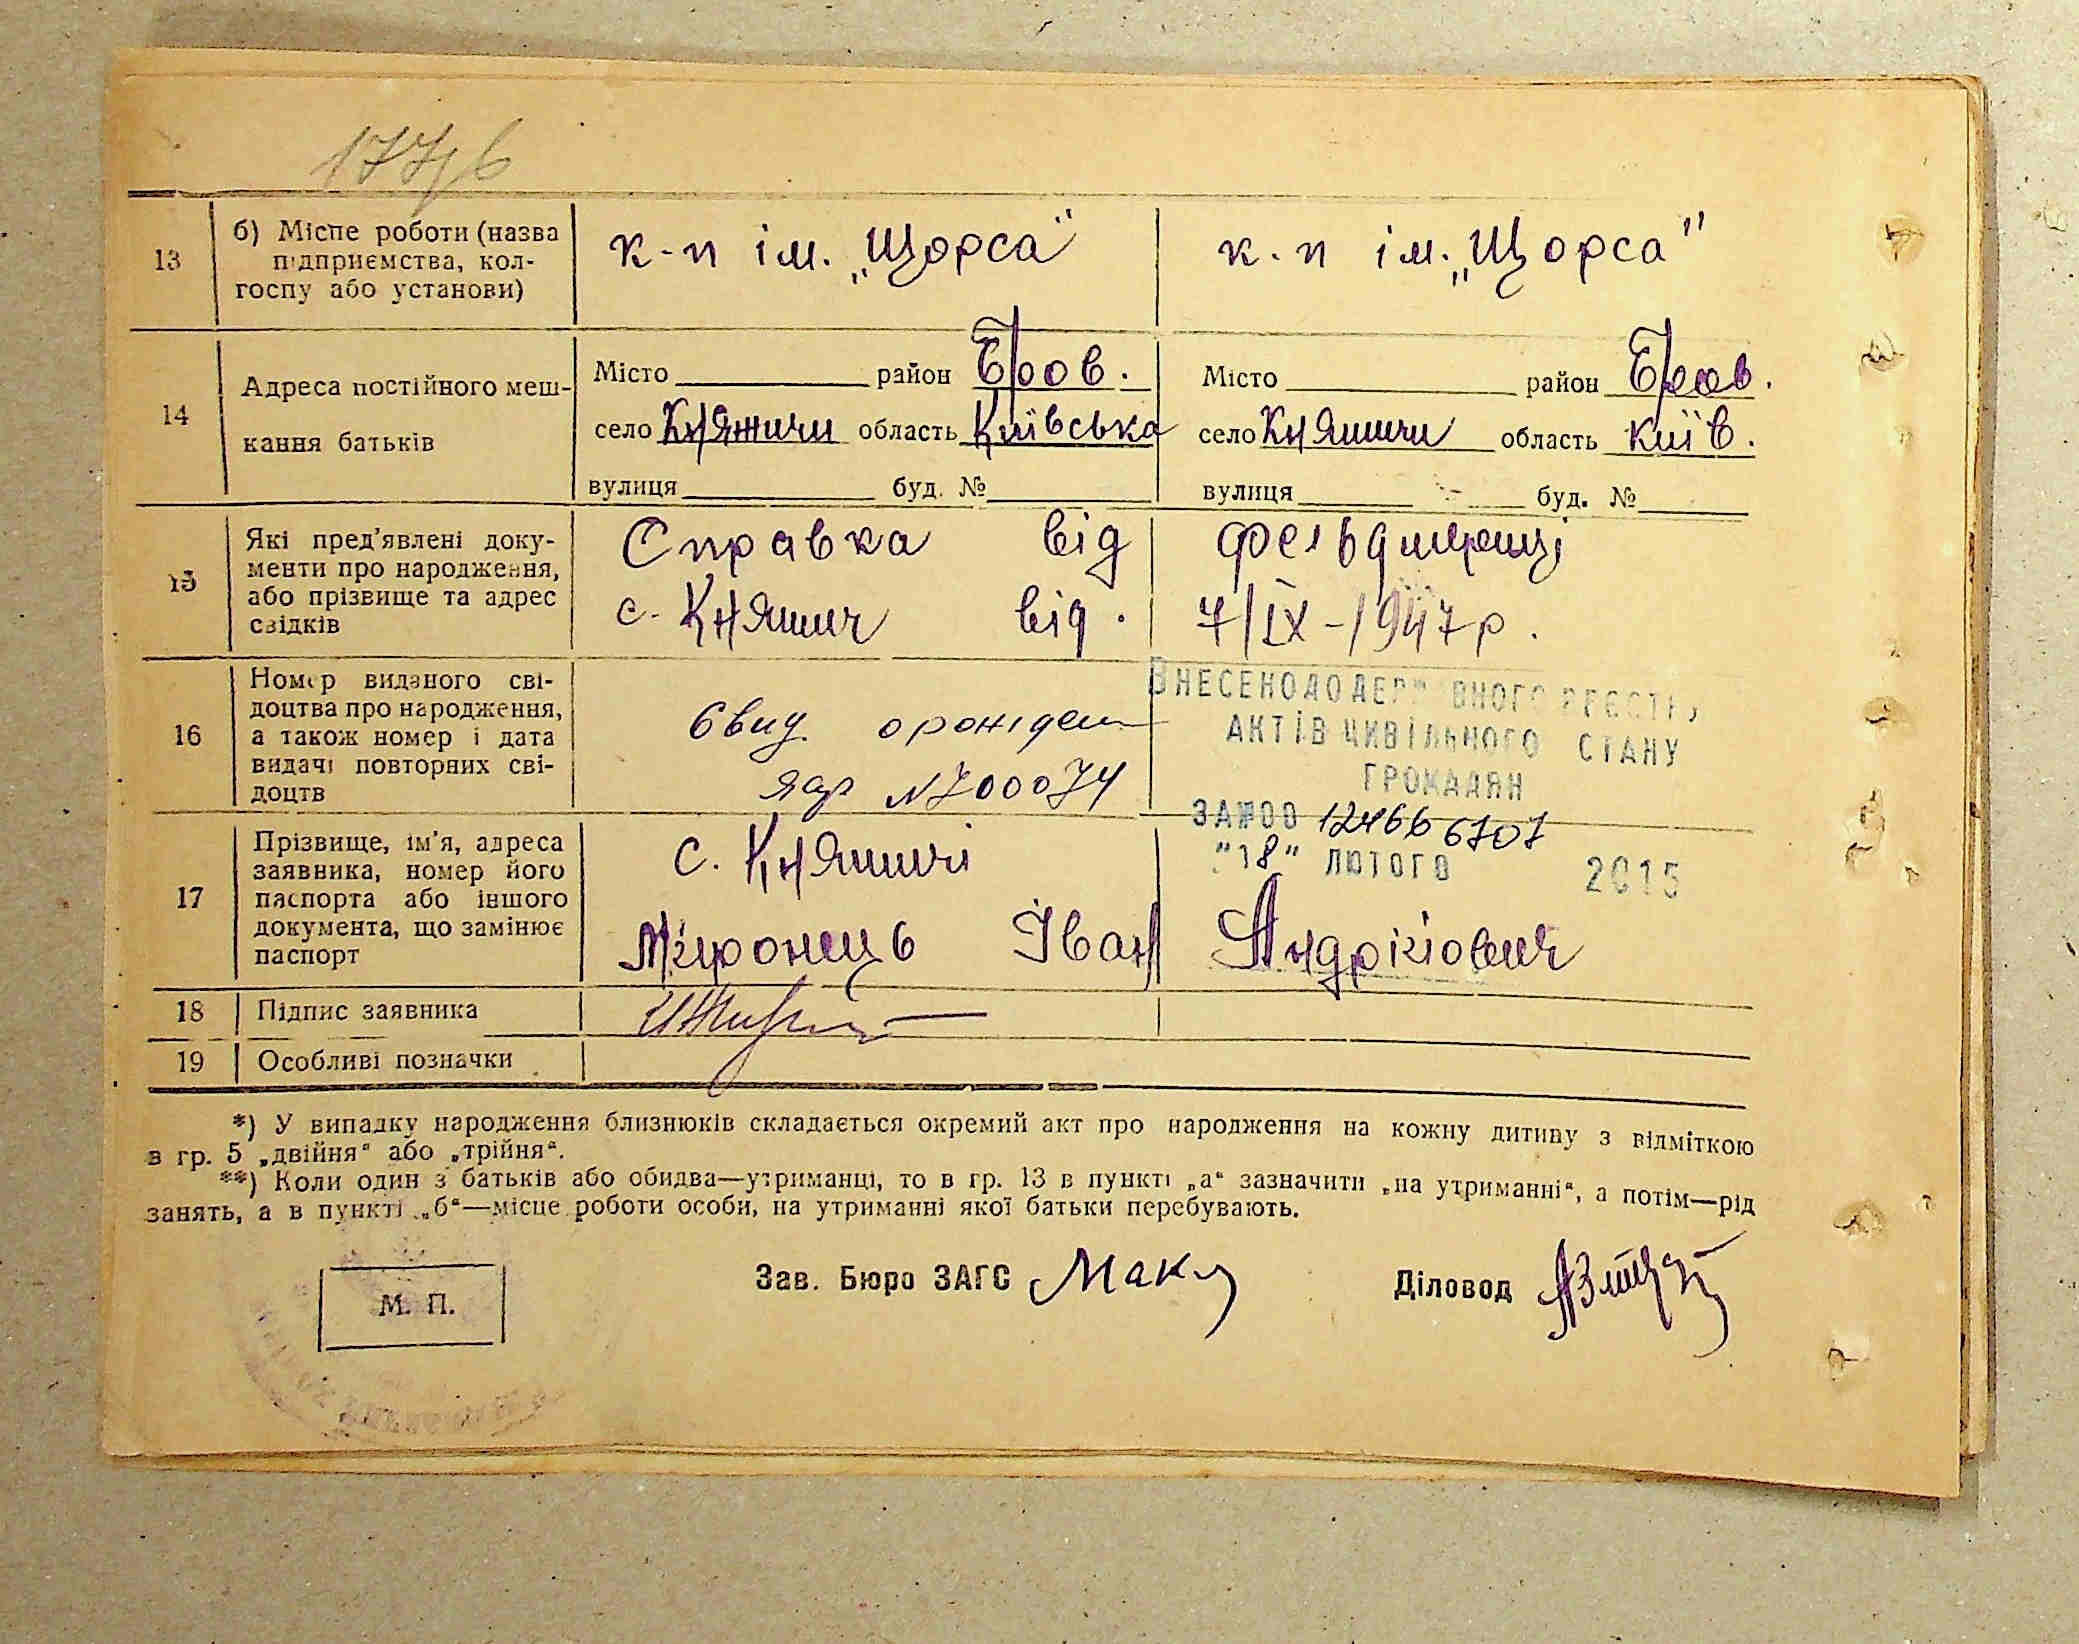 177
13
б) Місце роботи (назва
підприємства, кол-
госпу або установи)
к-п ім. „Щорса"
к.п ім. „Щорса"
14
Адреса постійного меш-
кання батьків
Місто район Бров.
село Княжичи область Київська
вулиця буд. №
Місто район Бров.
село Княжичи область Київ.
вулиця буд. №
15
Які пред'явлені доку-
менти про народження,
або прізвище та адрес
свідків
Справка від фельдшериці
с. Княжич від. 7/IX-1947 р.
16
Номер виданого сві-
доцтва про народження,
а також номер і дата
видачі повторних сві-
доцтв
Свид. о рожден
ЯАР № 700074
ВНЕСЕНО ДО ДЕРЖАВНОГО РЕЄСТРУ
АКТІВ ЦИВІЛЬНОГО СТАНУ
ГРОМАДЯН
ЗА №00 124666707
"18" ЛЮТОГО 2015
17
Прізвище, ім'я, адреса
заявника, номер його
паспорта або іншого
документа, що замінює
паспорт
с. Княжичі
Миронець Іван Андрієвич
18
Підпис заявника
19
Особливі позначки
*) У випадку народження близнюків складається окремий акт про народження на кожну дитину з відміткою
в гр. 5 „двійня“ або „трійня“.
**) Коли один з батьків або обидва—утриманці, то в гр. 13 в пункті „а“ зазначити „на утриманні“, а потім—рід
занять, а в пункті „б“—місце роботи особи, на утриманні якої батьки перебувають.
М. П.
Зав. Бюро ЗАГС
Діловод